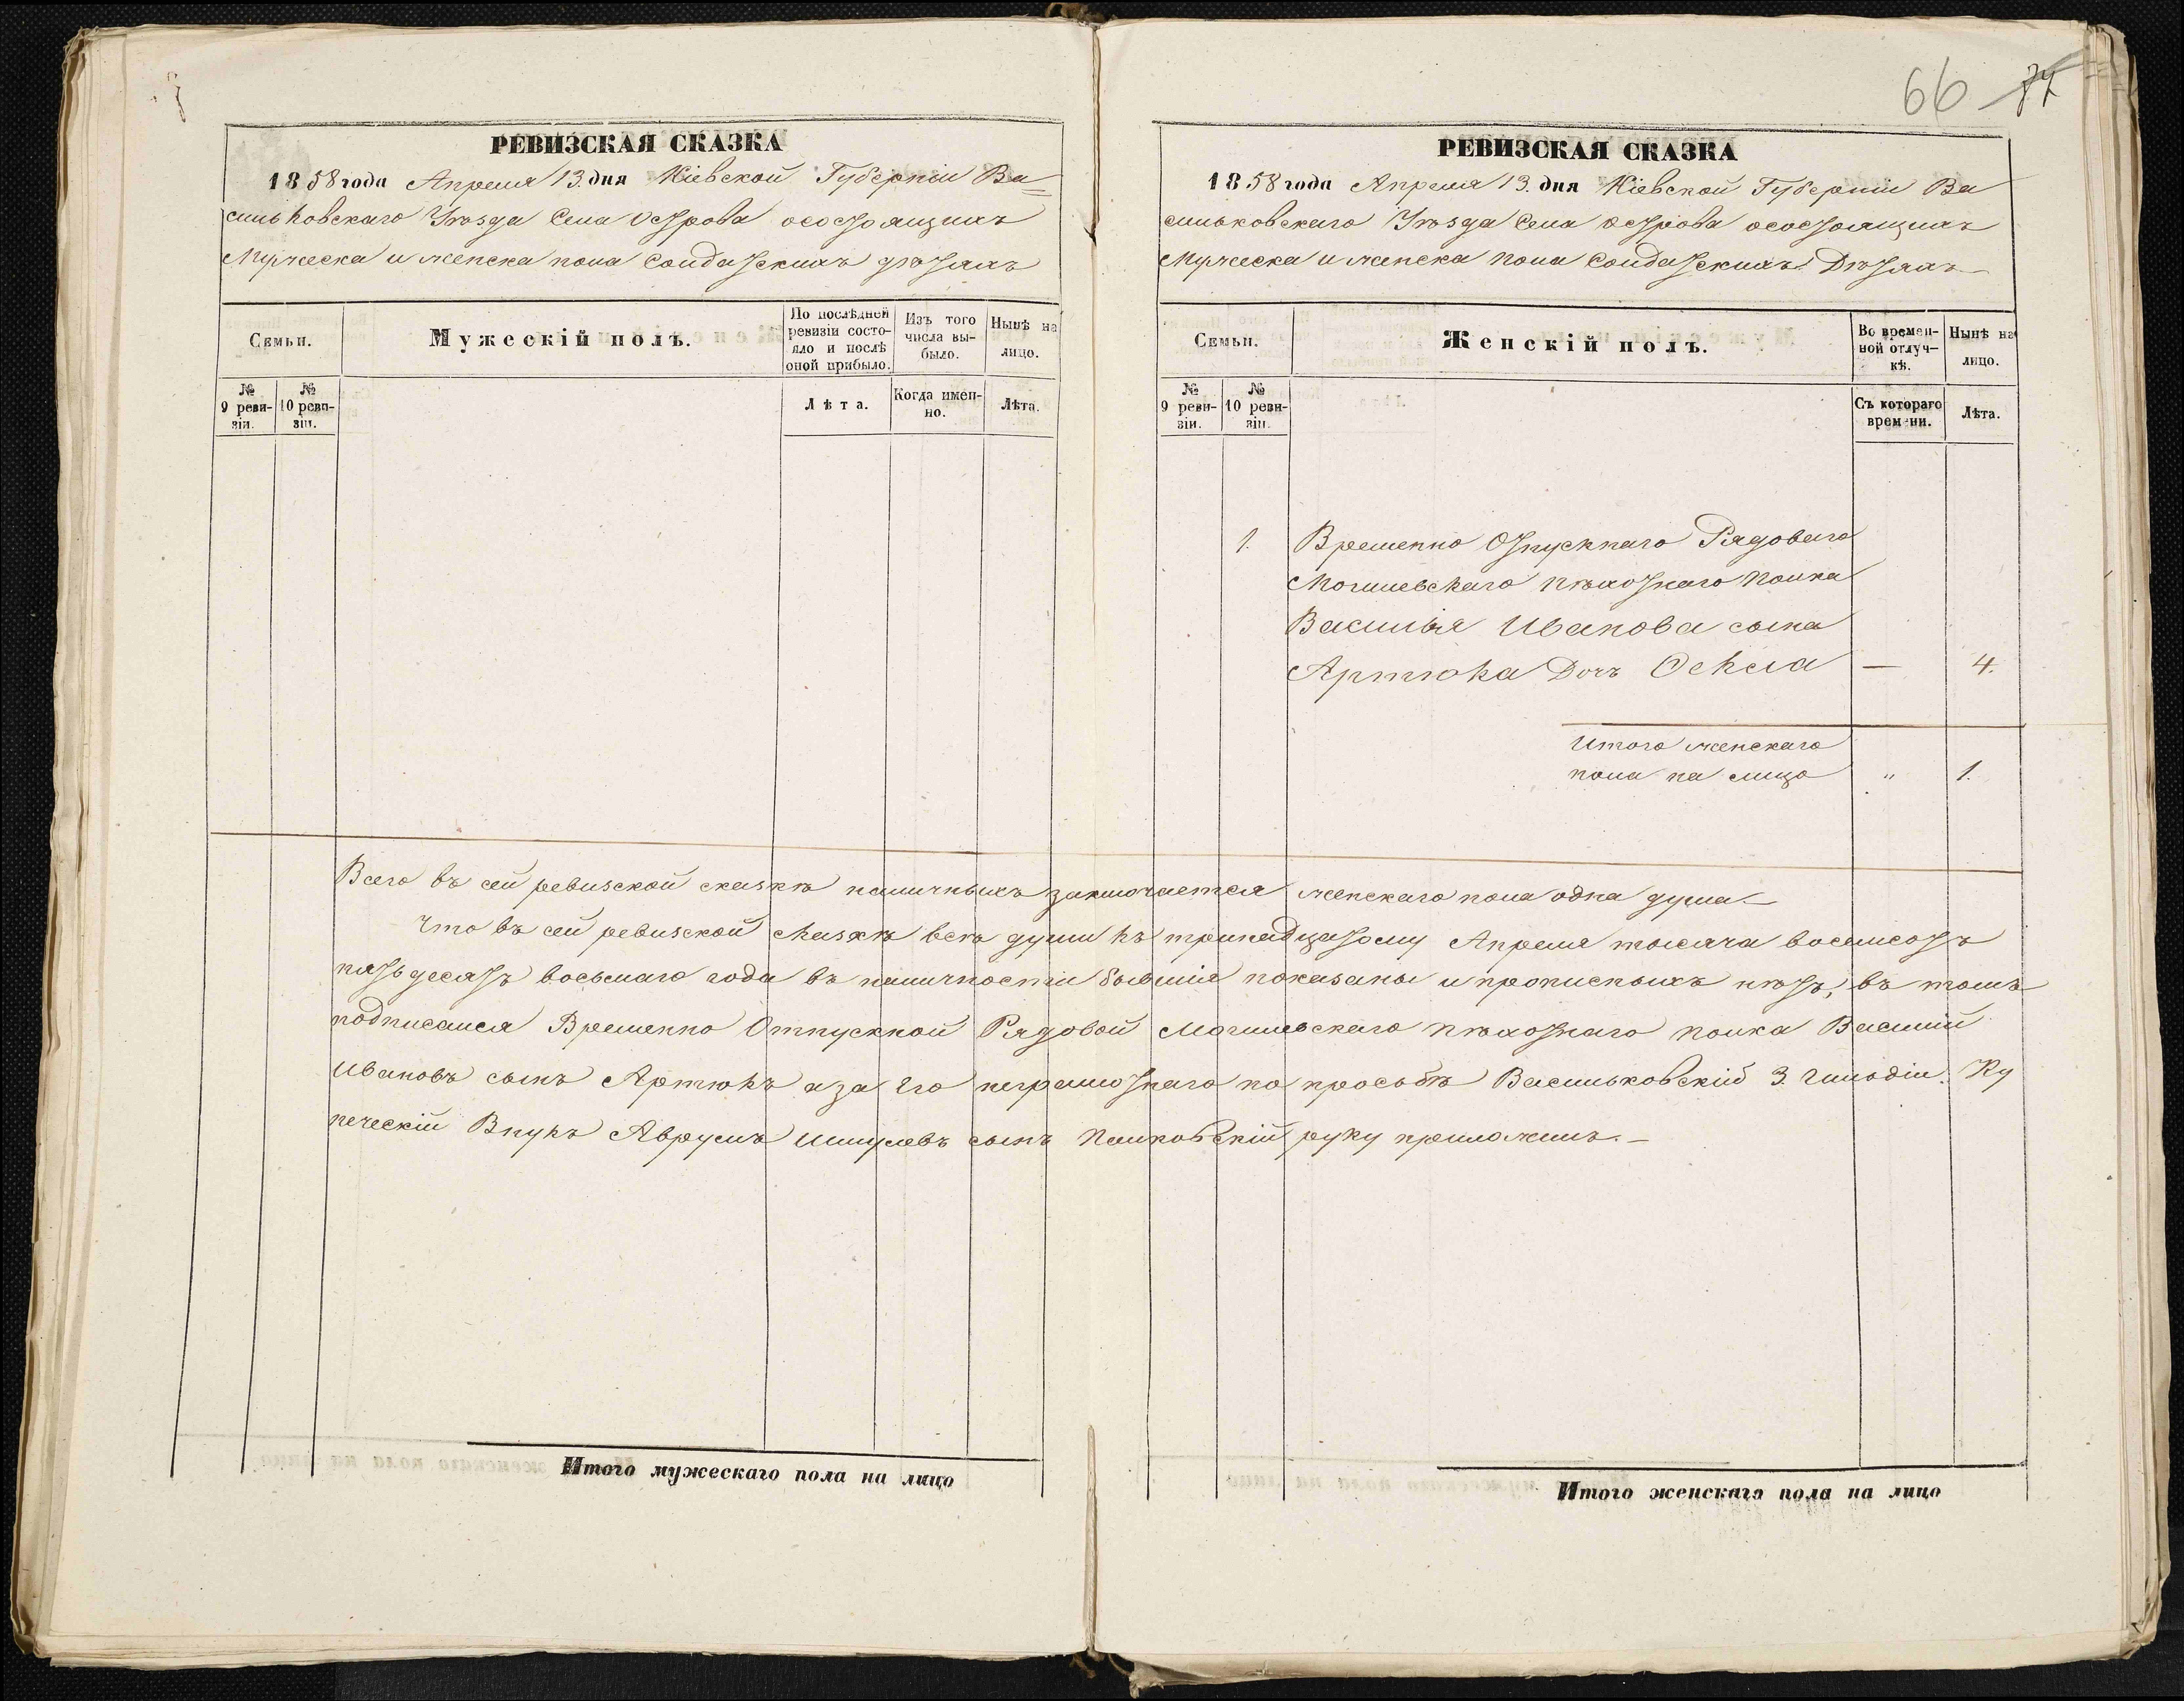 66 77
РЕВИЗСКАЯ СКАЗКА
1858 года Апреля 13. дня Кіевской Губерніи Ва=
сильковскаго Уѣзда Села Острова осостоящихъ
Мужеска и женска пола Солдатскихъ дѣтяхъ
Семьи.
Мужескій полъ.
По послѣдней ревизіи состояло и послѣ оной прибыло.
Изъ того числа выбыло.
Нынѣ на лицо.
№ 9 ревизіи.
№ 10 ревизіи.
Лѣта.
Когда именно.
Лѣта.
РЕВИЗСКАЯ СКАЗКА
1858 года Апреля 13. дня Кіевской Губерніи Ва
сильковскаго Уѣзда Села острова осостоящихъ
Мужеска и женска пола Солдатскихъ Дѣтяхъ
Семьи.
Женскій полъ.
Во временной отлучкѣ.
Нынѣ на лицо.
№ 9 ревизіи.
№ 10 ревизіи.
Съ котораго времени.
Лѣта.
1. Временно Отпускнаго Рядоваго
Могилевскаго пѣхотнаго полка
Василія Иванова сына
Артюка Дочь Оекла — 4.
Итого женскаго
пола на лицо „ 1.
Всего въ сей ревизской сказкѣ наличныхъ заключается женскаго пола одна душа.—
Что въ сей ревизской сказкѣ всѣ души къ тринадцатому Апреля тысяча восемсотъ
пятьдесятъ восьмаго года въ наличности бывшія показаны и прописныхъ нѣтъ, въ томъ
подписался Временно Отпускной Рядовой Могилевскаго пѣхотнаго полка Василій
Ивановъ сынъ Артюкъ а за Его неграмотнаго по просьбѣ Васильковскій 3. Гильдіи. Ку
печескій Внукъ Аврумъ Шмулевъ сынъ руку приложилъ.—
Итого мужескаго пола на лицо
Итого женскаго пола на лицо